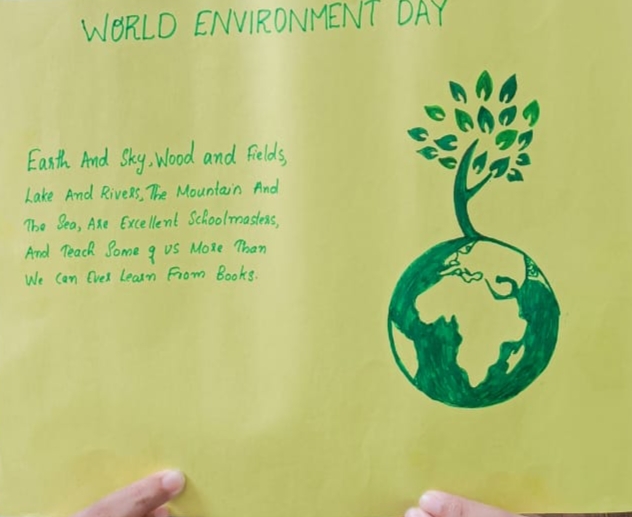 WORLD ENVIRONMENT DAY
Earth And Sky, Wood and Fields,
Lake And Rivers, The Mountain And
The Sea, Are Excellent Schoolmasters,
And Teach Some of US More Than
We Can Ever Learn From Books.